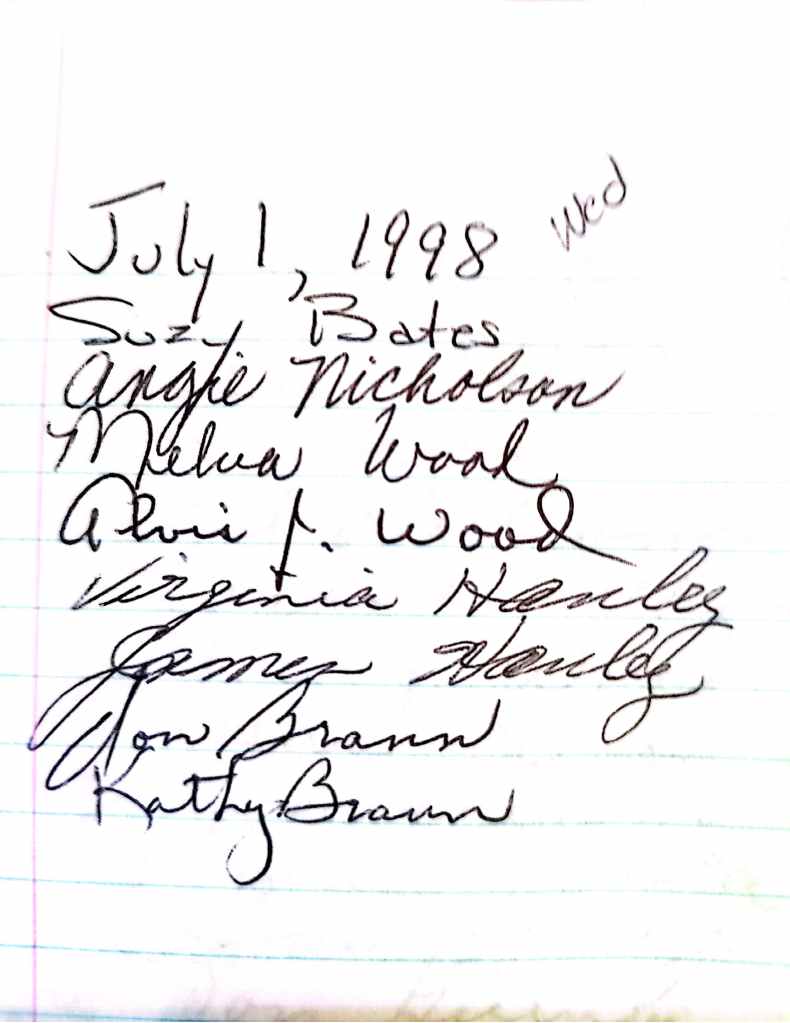 July 1, 1998 Wed
Suzy Bates
Angie Nicholson
Melva Wood
Alvis J. Wood
Virginia Hanley
James Hanley
Jon Braun
Kathy Braun